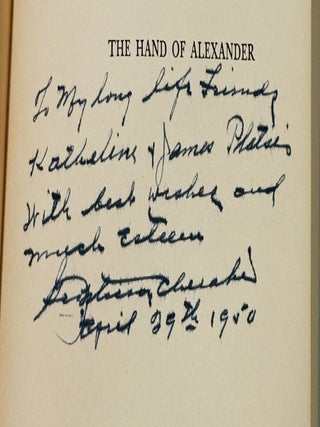 THE HAND OF ALEXANDER
To My long life Friends
Katheline & James
With best wishes and
much Esteem
April 29th 1950